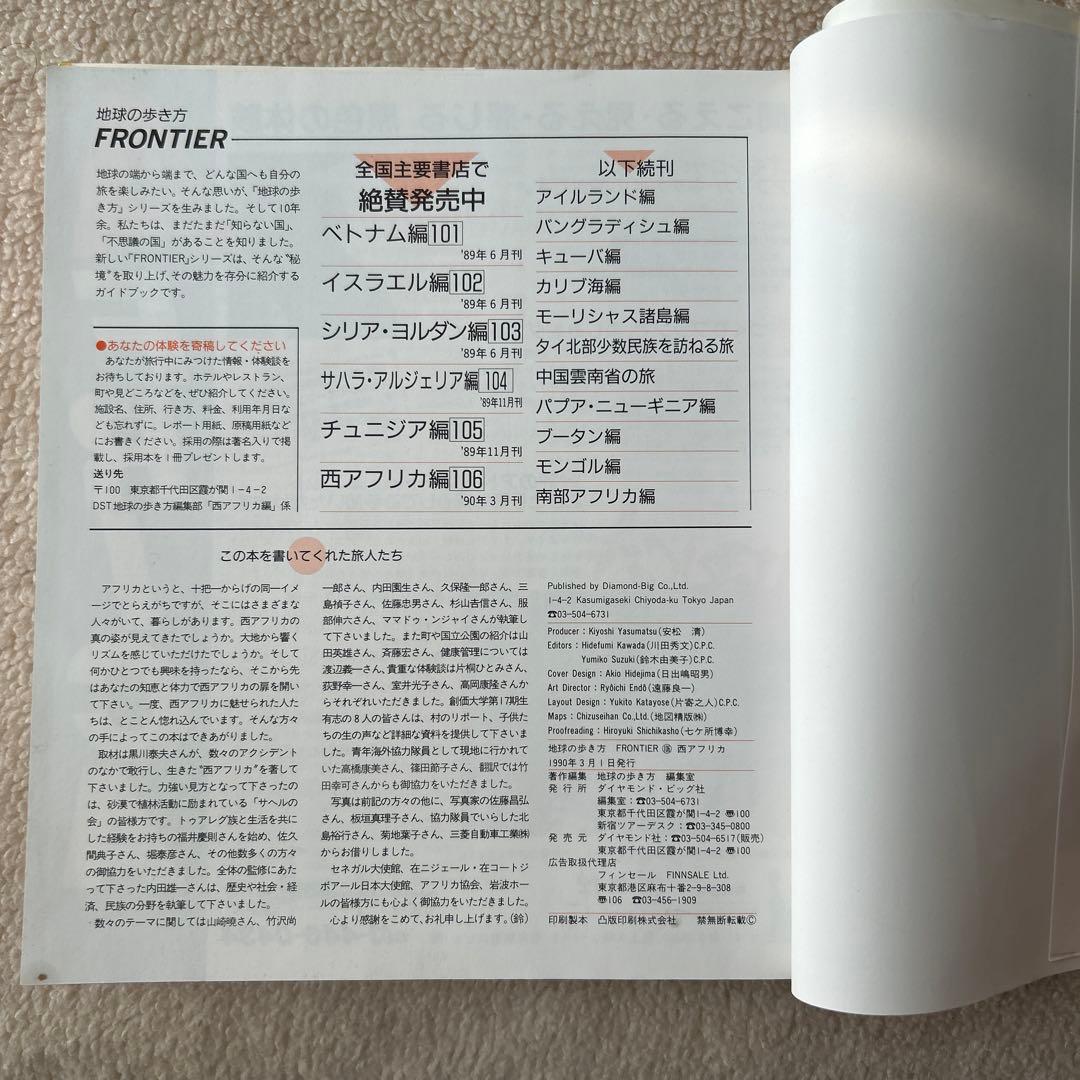 地球の歩き方
FRONTIER
地球の端から端まで、どんな国へも自分の
旅を楽しみたい。そんな思いが、「地球の歩
き方」シリーズを生みました。そして10年
余。私たちは、まだまだ「知らない国」、
「不思議の国」があることを知りました。
新しい「FRONTIER」シリーズは、そんな“秘
境”を取り上げ、その魅力を存分に紹介する
ガイドブックです。
●あなたの体験を寄稿してください
あなたが旅行中にみつけた情報・体験談を
お待ちしております。ホテルやレストラン、
町や見どころなどを、ぜひ紹介してください。
施設名、住所、行き方、料金、利用年月日な
ども忘れずに。レポート用紙、原稿用紙などに
にお書きください。採用の際は著名入りで掲
載し、採用本を1冊プレゼントします。
送り先
〒100 東京都千代田区霞が関1-4-2
DST地球の歩き方編集部「西アフリカ編」係
全国主要書店で
絶賛発売中
ベトナム編101
'89年6月刊
イスラエル編102
'89年6月刊
シリア・ヨルダン編103
'89年6月刊
サハラ・アルジェリア編104
'89年11月刊
チュニジア編105
'89年11月刊
西アフリカ編106
'90年3月刊
以下続刊
アイルランド編
バングラディシュ編
キューバ編
カリブ海編
モーリシャス諸島編
タイ北部少数民族を訪ねる旅
中国雲南省の旅
パプア・ニューギニア編
ブータン編
モンゴル編
南部アフリカ編
この本を書いてくれた旅人たち
アフリカというと、十把一からげの同一イメ
ージでとらえがちですが、そこにはさまざまな
人々がいて、暮らしがあります。西アフリカの
真の姿が見えてきたでしょうか。大地から響く
リズムを感じていただけたでしょうか。そして
何かひとつでも興味を持ったなら、そこから先
はあなたの知恵と体力で西アフリカの扉を開い
て下さい。一度、西アフリカに魅せられた人た
ちは、とことん惚れ込んでいます。そんな方々
の手によってこの本はできあがりました。
取材は黒川泰夫さんが、数々のアクシデント
のなかで敢行し、生きた“西アフリカ”を著して
下さいました。力強い見方となって下さったの
は、砂漠で植林活動に励まれている「サヘルの
会」の皆様方です。トゥアレグ族と生活を共に
した経験をお持ちの福井慶則さんを始め、佐久
間典子さん、堀泰彦さん、その他数多くの方々
の御協力をいただきました。全体の監修にあた
って下さった内田雄一さんは、歴史や社会・経
済、民族の分野を執筆して下さいました。
数々のテーマに関しては山崎暁さん、竹沢尚
一郎さん、内田園生さん、久保隆一郎さん、三
島禎子さん、佐藤忠男さん、杉山吉信さん、服
部伸六さん、ママドゥ・ンジャイさんが執筆し
て下さいました。また町や国立公園の紹介は山
田英雄さん、斉藤宏さん、健康管理については
渡辺義一さん、貴重な体験談は片桐ひとみさん、
荻野幸一さん、室井光子さん、高岡康隆さんか
らそれぞれいただきました。創価大学第17期生
有志の8人の皆さんは、村のリポート、子供た
ちの生の声など詳細な資料を提供して下さいま
した。青年海外協力隊員として現地に行かれて
いた高橋康美さん、篠田節子さん、翻訳では竹
田幸可さんからも御協力をいただきました。
写真は前記の方々の他に、写真家の佐藤昌弘
さん、板垣真理子さん、協力隊でいらした北
島裕行さん、菊地葉子さん、三菱自動車工業㈱
からお借りしました。
セネガル大使館、在ニジェール・在コートジ
ボアール日本大使館、アフリカ協会、岩波ホー
ルの皆様方にも心よく御協力をいただきました。
心より感謝をこめて、お礼申し上げます。(鈴)
Published by Diamond-Big Co.,Ltd.
1-4-2 Kasumigaseki Chiyoda-ku Tokyo Japan
☎03-504-6731
Producer : Kiyoshi Yasumatsu(安松 清)
Editors : Hidefumi Kawada(川田秀文)C.P.C.
Yumiko Suzuki(鈴木由美子)C.P.C.
Cover Design : Akio Hidejima(日出嶋昭男)
Art Director : Ryōichi Endō(遠藤良一)
Layout Design : Yukito Katayose(片寄之人)C.P.C.
Maps : Chizuseihan Co.,Ltd.(地図精版㈱)
Proofreading : Hiroyuki Shichikasho(七ケ所博幸)
地球の歩き方 FRONTIER 106 西アフリカ
1990年3月1日発行
著作編集 地球の歩き方 編集室
発行所 ダイヤモンド・ビッグ社
編集室：☎03-504-6731
東京都千代田区霞が関1-4-2 〒100
新宿ツアーデスク：☎03-345-0800
発売元 ダイヤモンド社：☎03-504-6517(販売)
東京都千代田区霞が関1-4-2 〒100
広告取扱代理店
フィンセール FINNSALE Ltd.
東京都港区麻布十番2-9-8-308
〒106 ☎03-456-1909
印刷製本 凸版印刷株式会社 禁無断転載Ⓒ